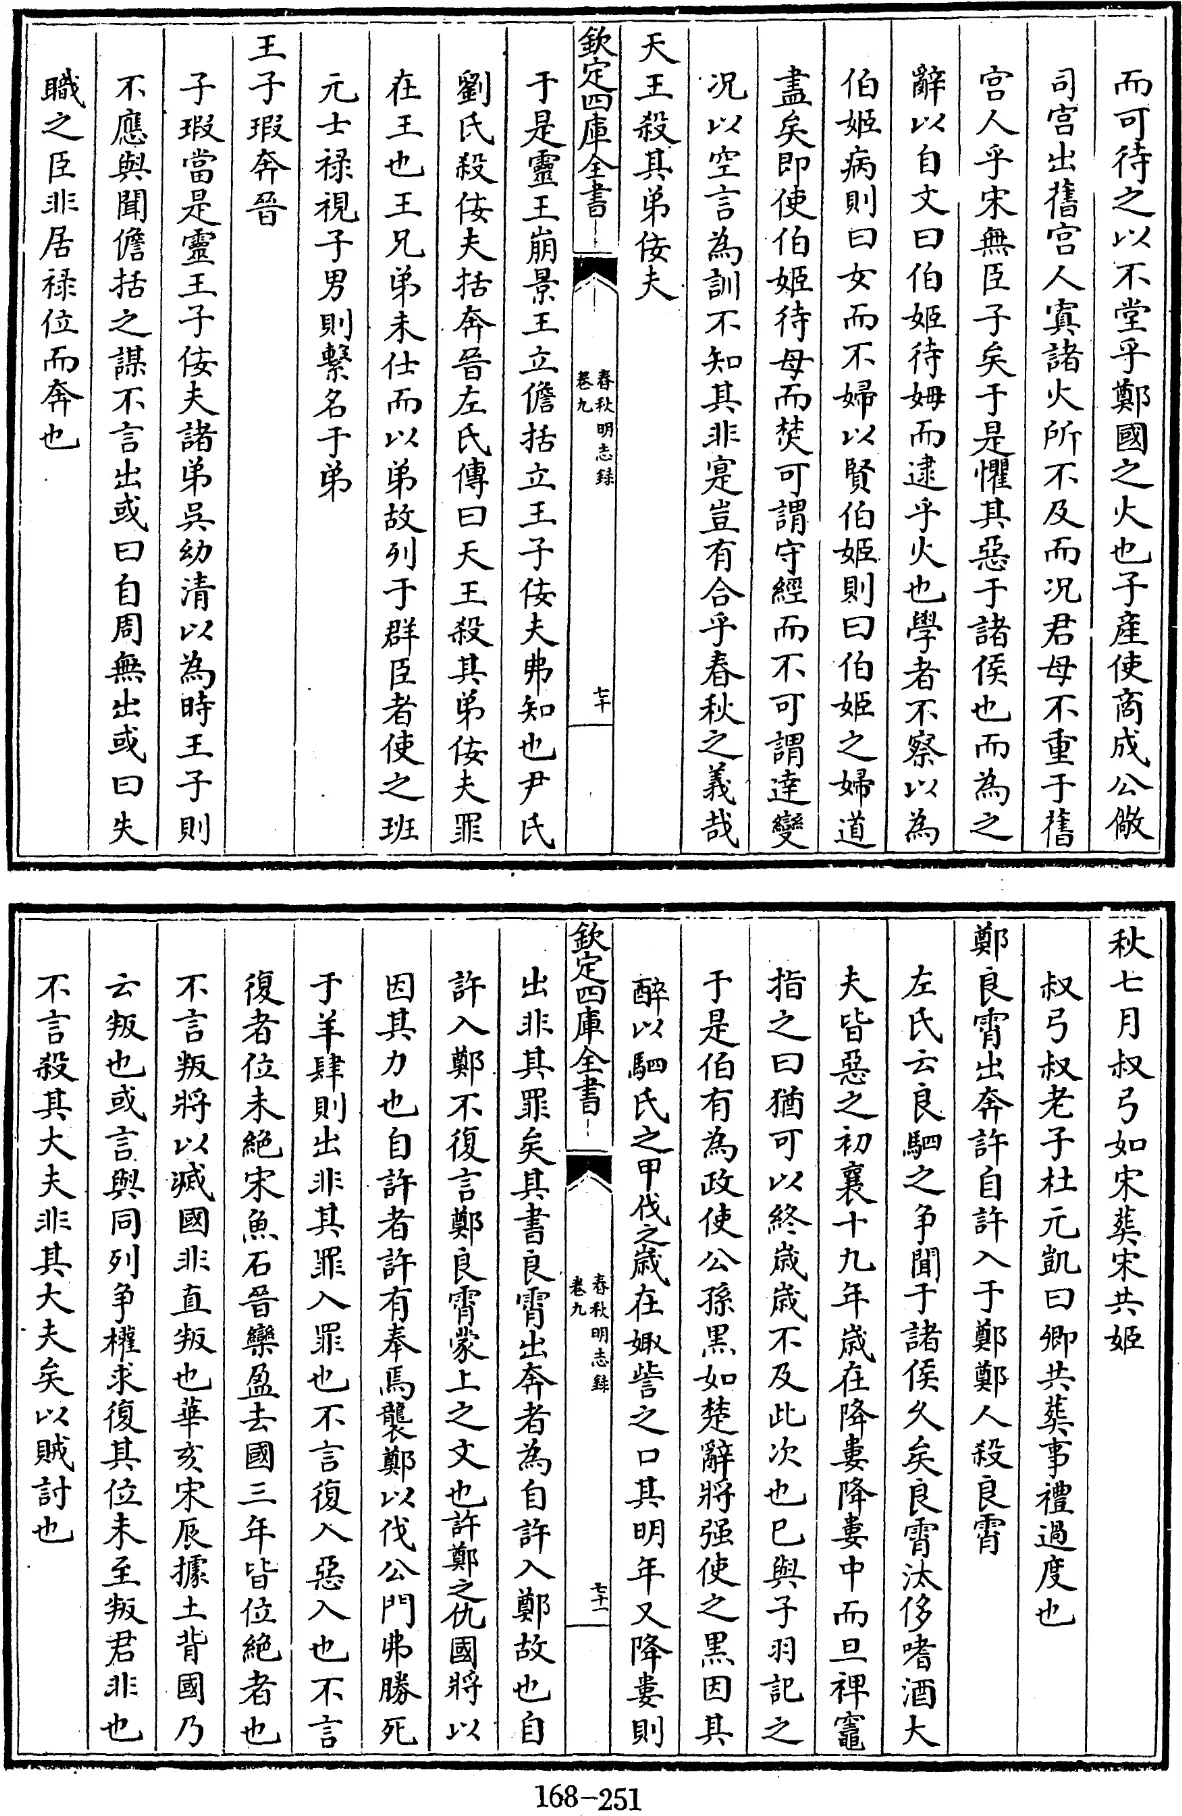 而可待之以不堂乎鄭國之火也子産使商成公儆
司宫出舊宫人寘諸火所不及而况君母不重于舊
宫人乎宋無臣子矣于是懼其惡于諸侯也而為之
辭以自文曰伯姬待姆而逮乎火也學者不察以為
伯姬病則曰女而不婦以賢伯姬則曰伯姬之婦道
盡矣即使伯姬待母而焚可謂守經而不可謂達變
况以空言為訓不知其非寔豈有合乎春秋之義哉
天王殺其弟佞夫
欽定四庫全書
春秋明志録
卷九
七十
于是靈王崩景王立儋括立王子佞夫弗知也尹氏
劉氏殺佞夫括奔晉左氏傳曰天王殺其弟佞夫罪
在王也王兄弟未仕而以弟故列于群臣者使之班
元士禄視子男則繫名于弟
王子瑕奔晉
子瑕當是靈王子佞夫諸弟吳幼清以為時王子則
不應與聞儋括之謀不言出或曰自周無出或曰失
職之臣非居禄位而奔也
秋七月叔弓如宋葬宋共姬
叔弓叔老子杜元凱曰卿共葬事禮過度也
鄭良霄出奔許自許入于鄭鄭人殺良霄
左氏云良駟之争聞于諸侯久矣良霄汰侈嗜酒大
夫皆惡之初襄十九年歳在降婁降婁中而旦裨竈
指之曰猶可以終歳歳不及此次也已與子羽記之
于是伯有為政使公孫黑如楚辭將强使之黑因其
醉以駟氏之甲伐之歳在娵訾之口其明年又降婁則
欽定四庫全書
春秋明志録
卷九
七十一
出非其罪矣其書良霄出奔者為自許入鄭故也自
許入鄭不復言鄭良霄蒙上之文也許鄭之仇國將以
因其力也自許者許有奉馬襲鄭以伐公門弗勝死
于羊肆則出非其罪入罪也不言復入惡入也不言
復者位未絶宋魚石晉欒盈去國三年皆位絶者也
不言叛將以戚國非直叛也華亥宋辰據土背國乃
云叛也或言與同列争權求復其位未至叛君非也
不言殺其大夫非其大夫矣以賊討也
168-251